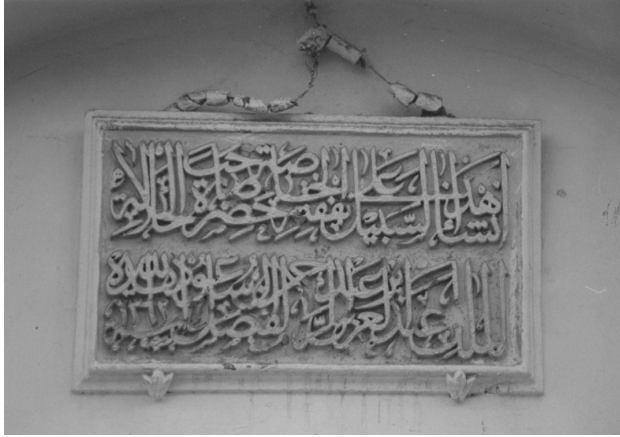 أنشأ هذا السبيل على نفقته الخاصة حضرة صاحب الجلالة
الملك عبد العزيز ابن عبد الرحمن الفيصل السعود